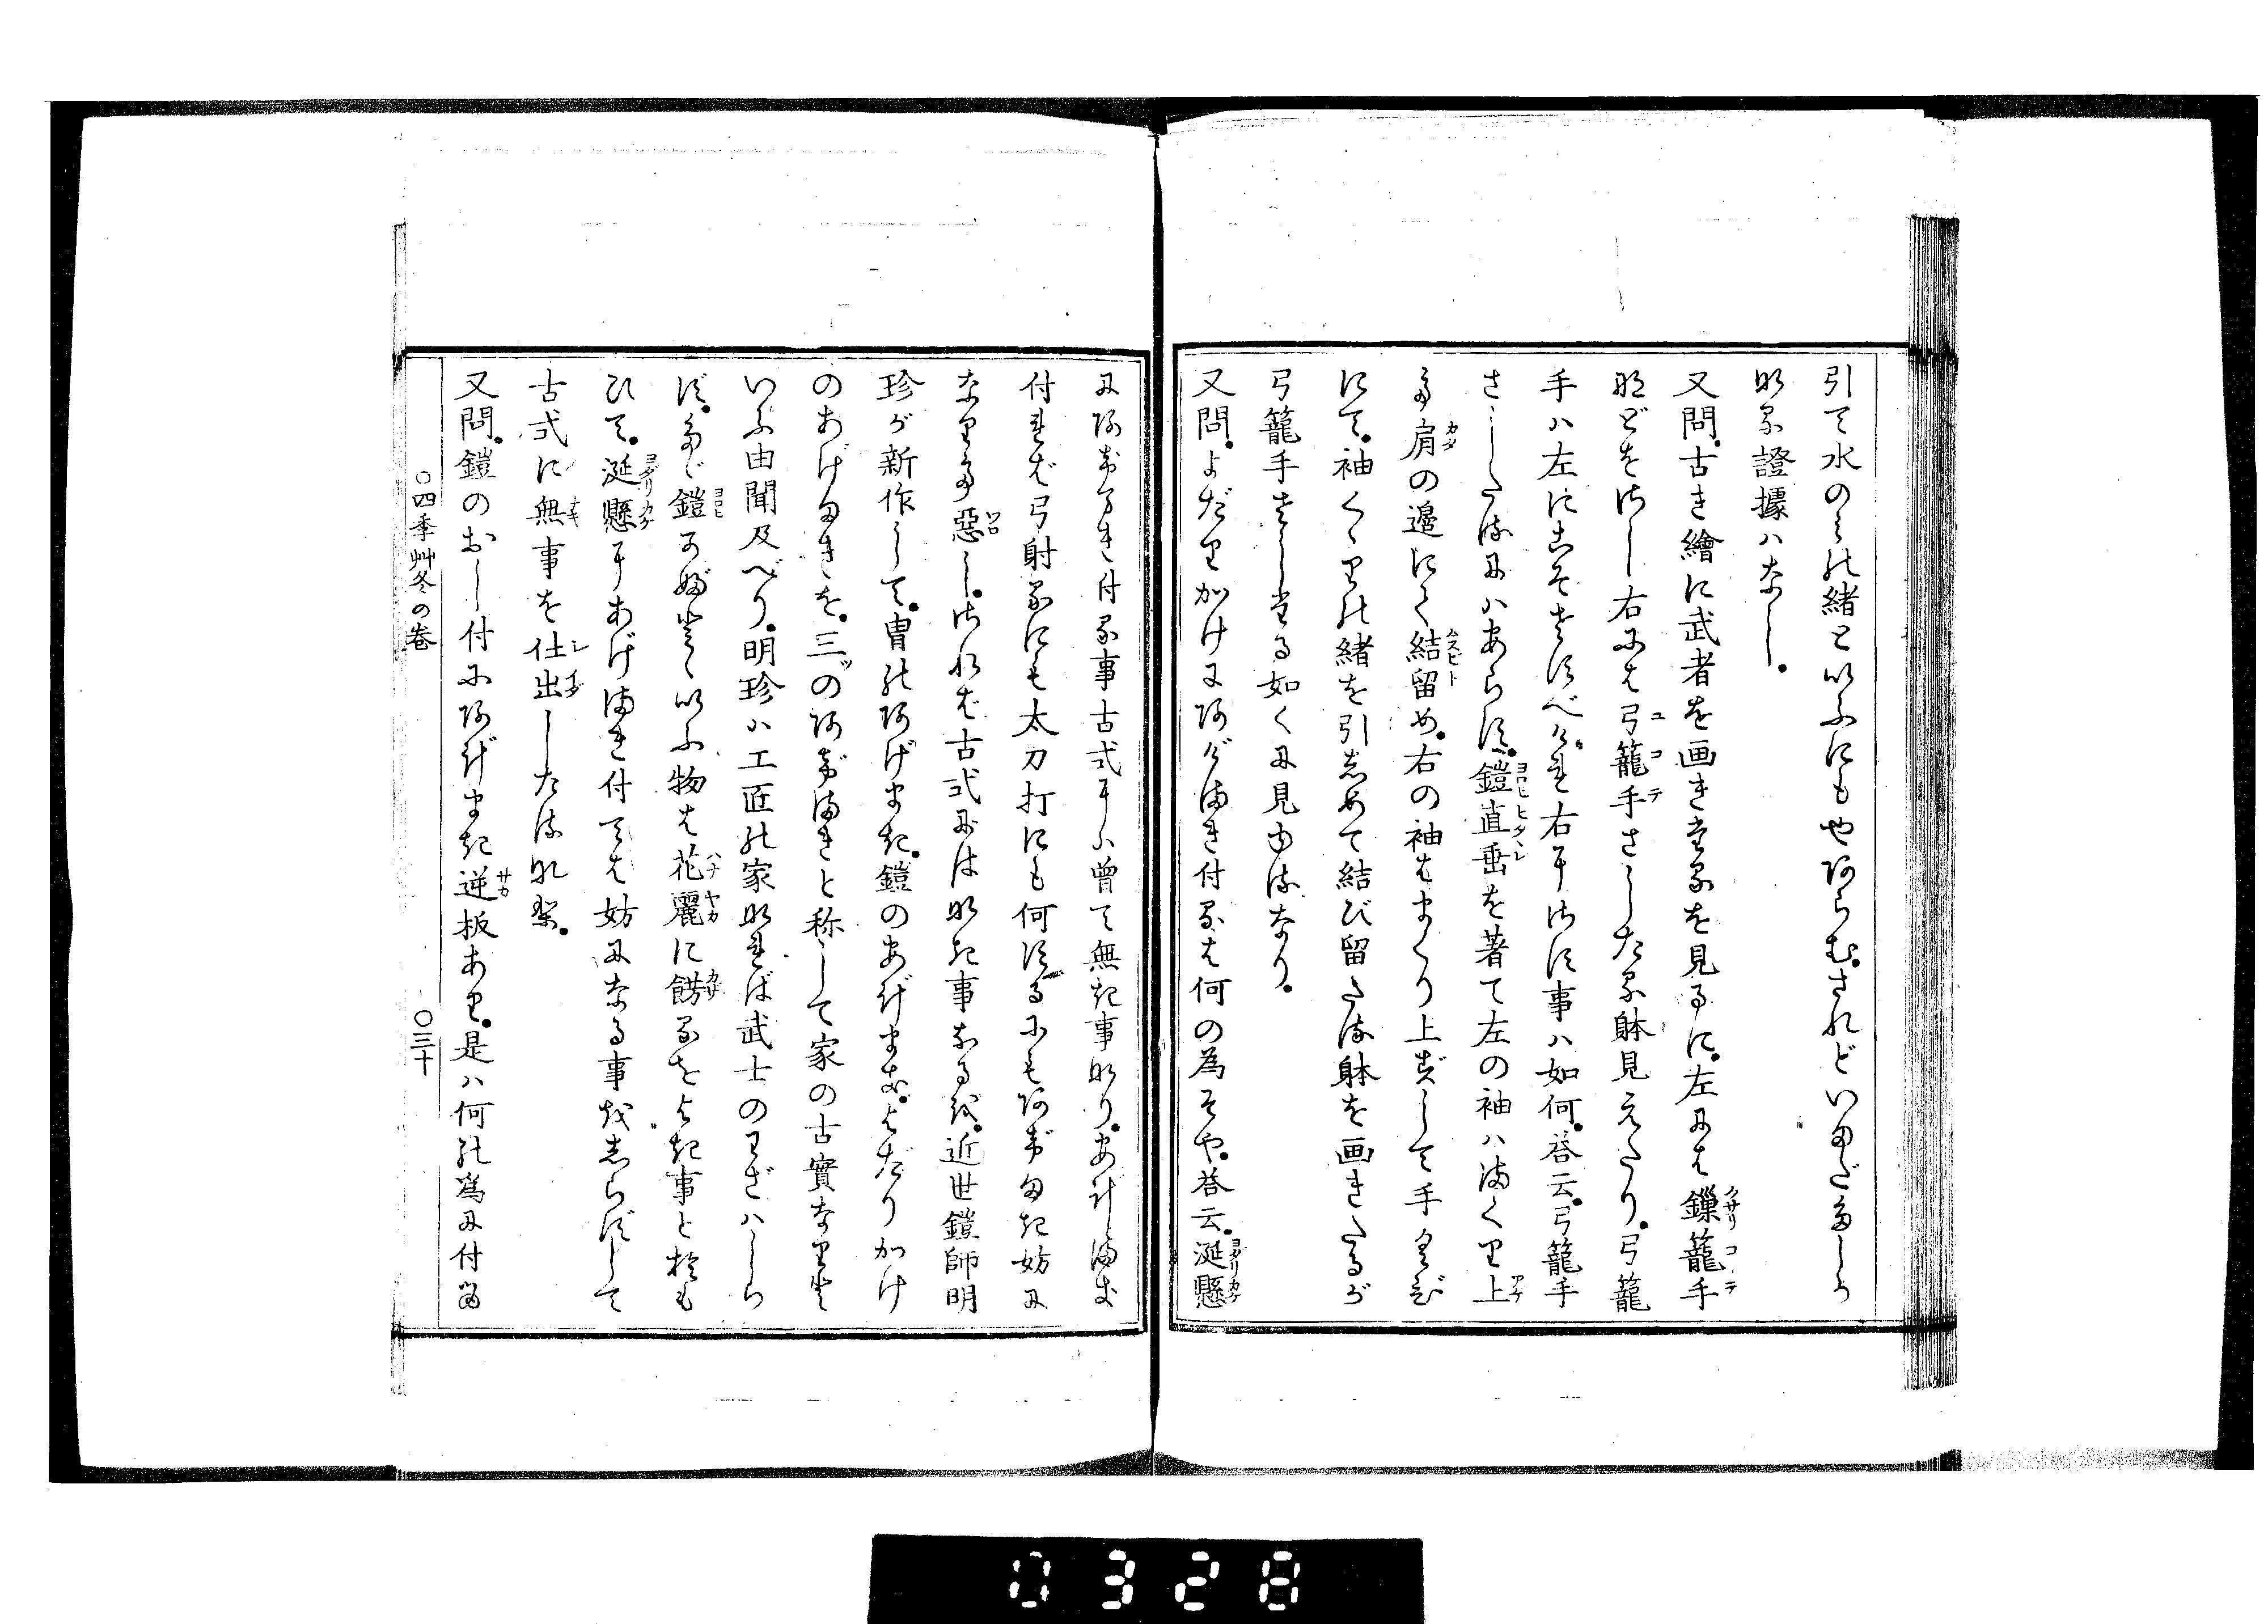 引て水のみの緒といふにもやあらむ。されどいまだたしか
なる證據ハなし。
又問。古き繪に武者を画きたるを見るに。左にハ鏁籠手
などをさし右にハ弓籠手さしたる躰見えたり。弓籠
手ハ左にこそさすべけれ右にさす事ハ如何。答云。弓籠手
さしたるにハあらず。鎧直垂を著て左の袖ハまくり上
て肩の邊にて結留め。右の袖をまくり上ずして手くび
にて。袖くゝりの緒を引しめて結び留たる躰を画きたるが
弓籠手さしたる如くに見ゆるなり。
又問。よだり加けにあげまき付るハ何の為そや。答云。涎懸
にあげまき付る事古式にハ曽て無き事なり。あげまき
付れば弓射るにも太刀打にも何するにもあげまき妨に
なりて惡し。されば古式にはなき事なるを。近世鎧師明
珍が新作して。冑のあげまき。鎧のあげまき。よだり加け
のあげまきを。三ツのあげまきと称して家の古實なりと
いふ由聞及べり。明珍ハ工匠の家なれば武士のわざハしら
ず。たゞ鎧かぶとゝいふ物を花麗に餝るをよき事とおも
ひて。涎懸にあげまき付てハ妨になる事をしらずして
古式に無事を仕出したるなり。
又問。鎧のおし付にあげまき逆板あり。是ハ何の爲に付る
○四季艸冬の巻
○三十
0328